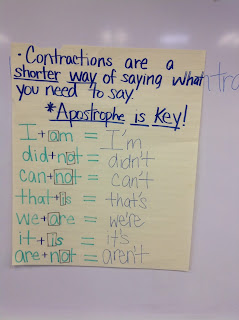 · Contractions are a
shorter way of saying what
you need to say.
*Apostrophe is Key!
I + am = I'm
did + not = didn't
can + not = can't
that + is = that's
we + are = we're
it + is = it's
are + not = aren't